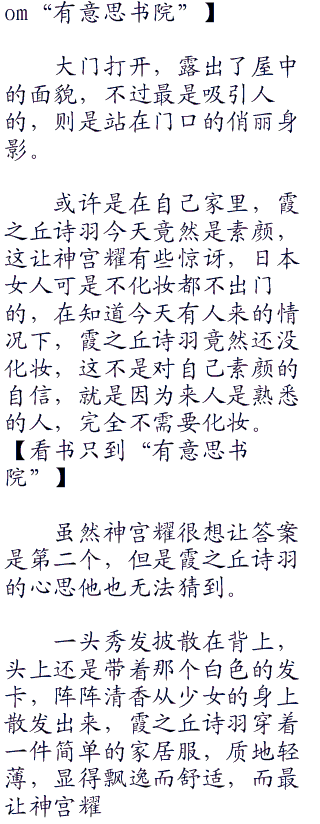 om“有意思书院”】
大门打开，露出了屋中
的面貌，不过最是吸引人
的，则是站在门口的俏丽身
影。
或许是在自己家里，霞
之丘诗羽今天竟然是素颜，
这让神宫耀有些惊讶，日本
女人可是不化妆都不出门
的，在知道今天有人来的情
况下，霞之丘诗羽竟然还没
化妆，这不是对自己素颜的
自信，就是因为来人是熟悉
的人，完全不需要化妆。
【看书只到“有意思书
院”】
虽然神宫耀很想让答案
是第二个，但是霞之丘诗羽
的心思他也无法猜到。
一头秀发披散在背上，
头上还是带着那个白色的发
卡，阵阵清香从少女的身上
散发出来，霞之丘诗羽穿着
一件简单的家居服，质地轻
薄，显得飘逸而舒适，而最
让神宫耀